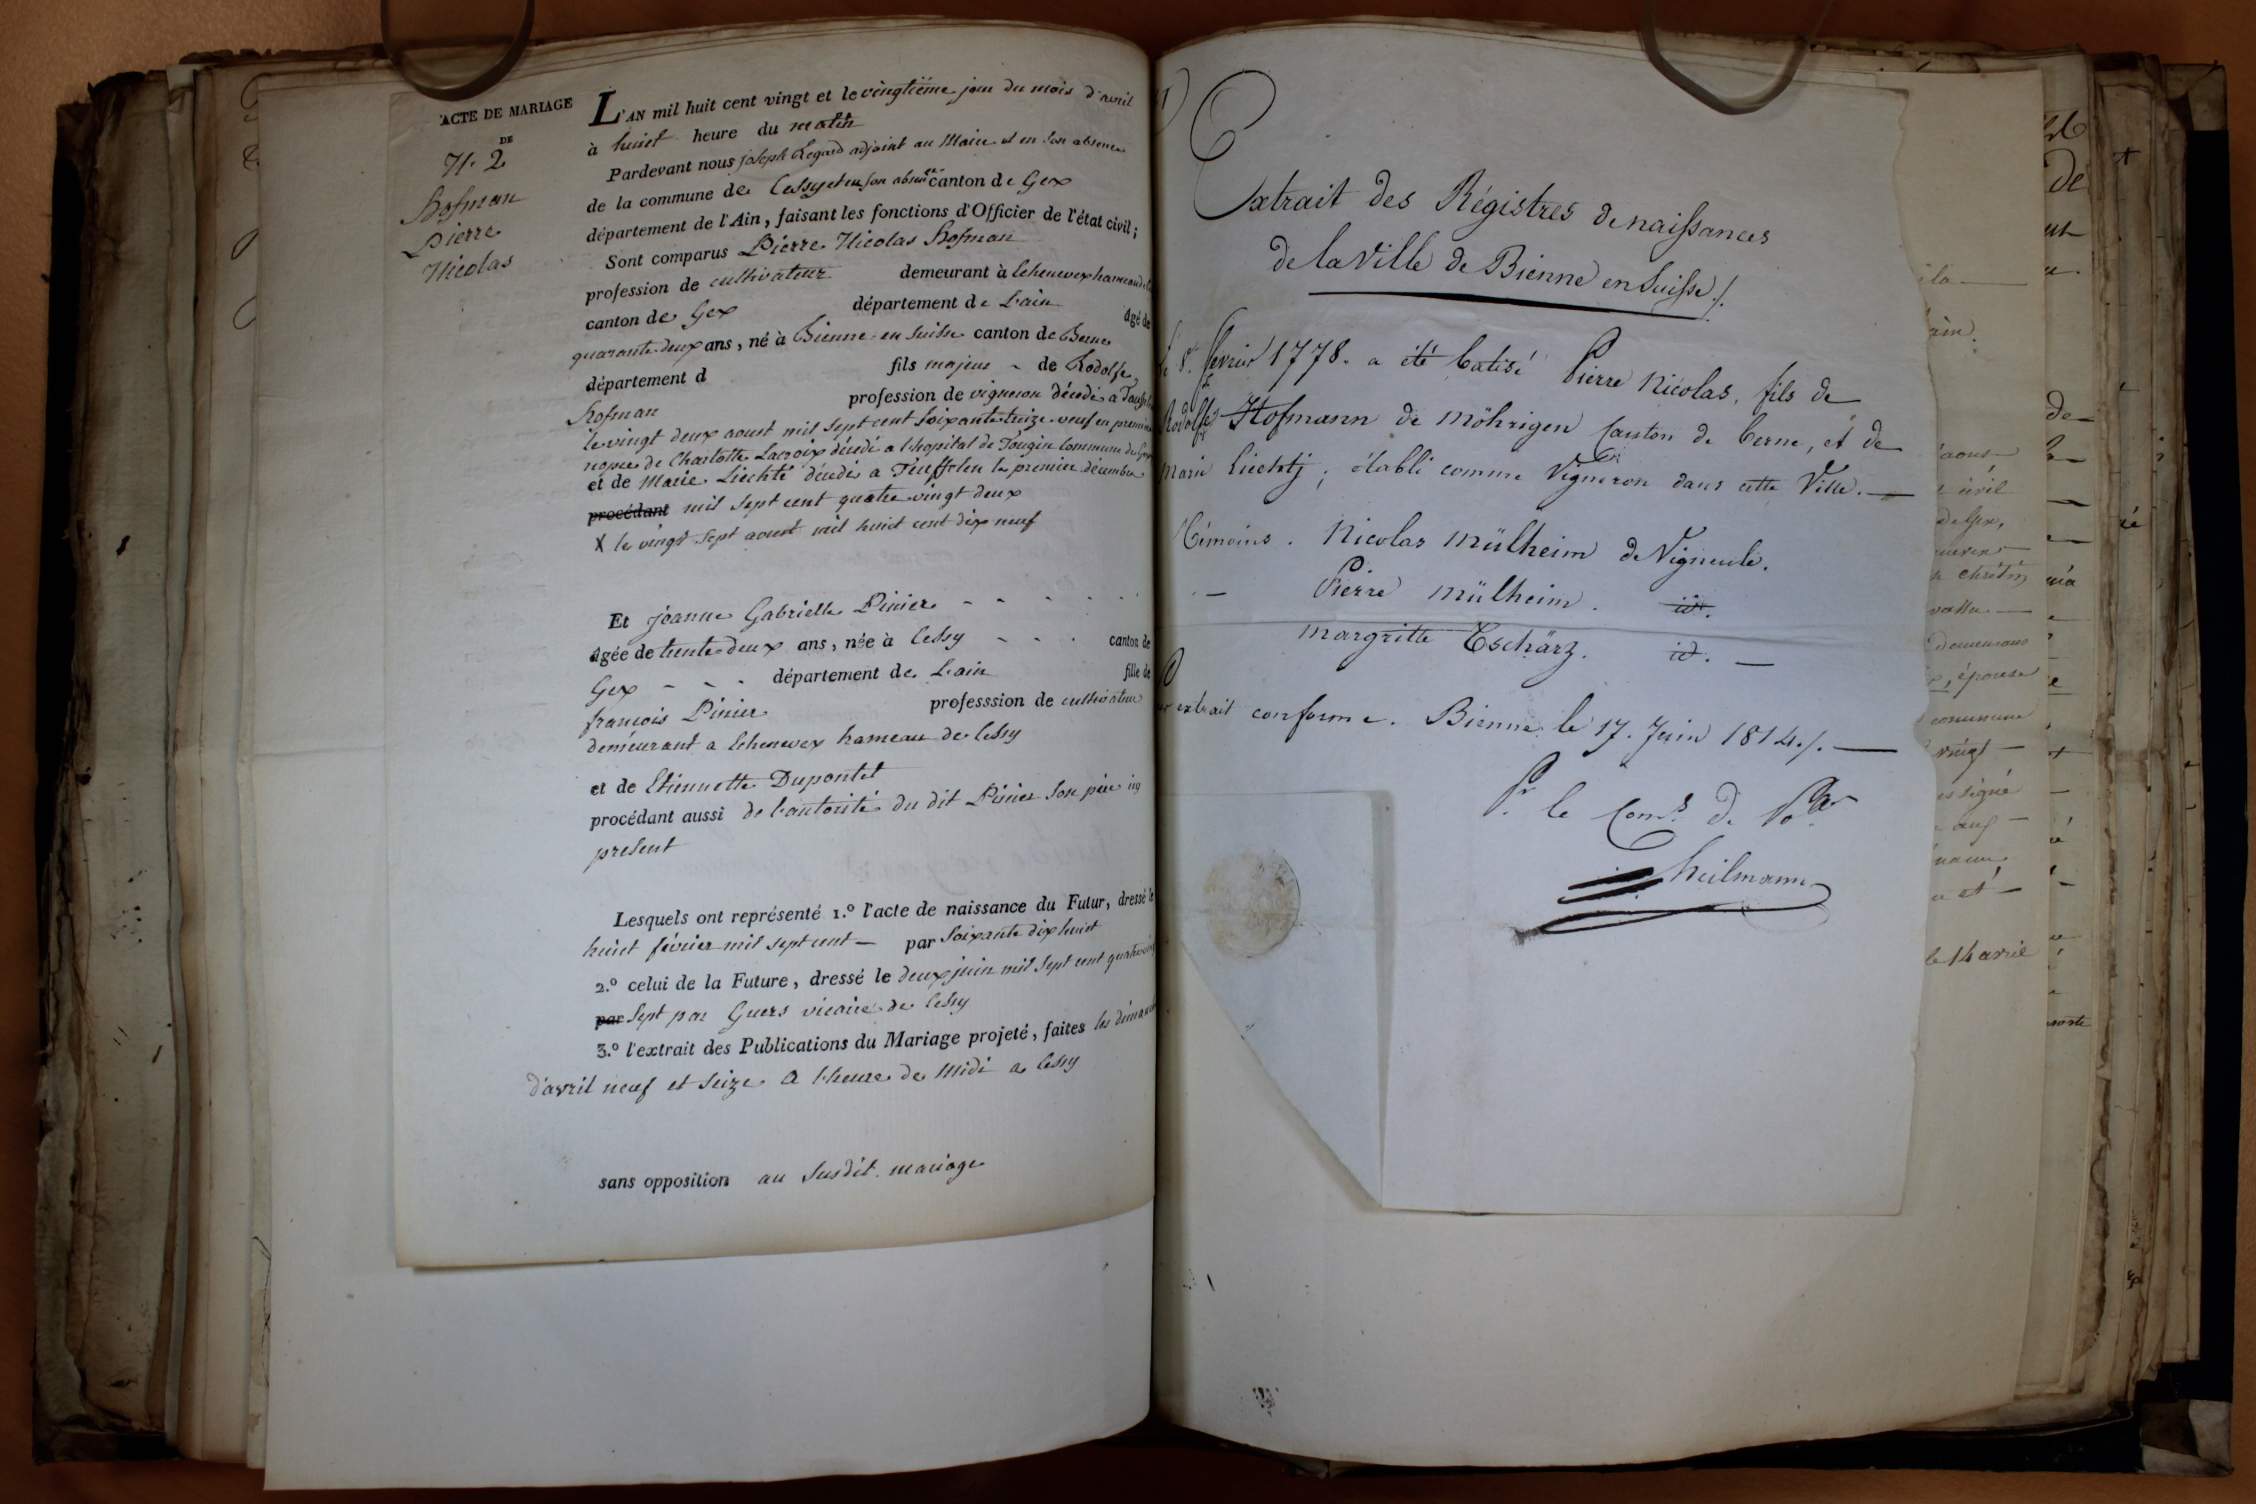 ACTE DE MARIAGE
DE
N. 2
Hofman
Pierre
Nicolas
L'AN mil huit cent vingt et le vingtiéme jour du mois d'avril
à huict heure du matin
Pardevant nous joseph Regard adjoint au Maire et en son absence
de la commune de Cessy et en son absence canton de Gex
département de l'Ain, faisant les fonctions d'Officier de l'état civil;
Sont comparus Pierre Nicolas Hofman
profession de cultivateur demeurant à Chenevex hameau de
canton de Gex département de Lain Agé de
quarante deux ans, né à Bienne en Suisse canton de Berne
département d fils majeur - de Rodolfe
Hofman profession de vigneron décédé a
le vingt deux aoust mil sept cent soixante treize veuf en premiere
nopce de Charlotte Lacroix décédé a l'hopital de Tougin Commune de Gex
et de Marie Liechté décédé a Teuffelen le premier décembre
procédant mil sept cent quatre vingt deux
X le vingt sept aoust mil huict cent dix neuf
Et jeanne Gabrielle Pinier - - - - - -
Agée de trente deux ans, née à Cessy - - - canton de
Gex - - - département de Lain fille de
françois Pinier professsion de cultivateur
demeurant a Chenevex hameau de Cessy
et de Etiennette Dupontet
procédant aussi de l'autorité du dit Pinier son père icy
present
Lesquels ont représenté 1.º l'acte de naissance du Futur, dressé le
huict février mil sept cent — par soixante dix huict
2.º celui de la Future, dressé le deux juin mil sept cent quatrevingt
par sept par Guers vicaire de Cessy
3.º l'extrait des Publications du Mariage projeté, faites les dimanches
d'avril neuf et seize a l'heure de midi a Cessy
sans opposition au susdit mariage
Extrait des Régistres de naissances
de la Ville de Bienne en Suisse /.
Le 8. fevrier 1778. a été batisé Pierre Nicolas, fils de
Rodolfe Hofmann de Möhrigen Canton de berne, et de
Marie Liechtj, établi comme Vigneron dans cette Ville. —
Témoins. Nicolas Mülheim de Vigneule.
- Pierre Mülheim. id.
Margritte Tschärz. id. —
Pr extrait conforme. Bienne le 17. Juin 1814 /. —
Pr. le Coms. de
Heilmann
de
de Gex,
vallu
demeurant
épouse
commune
vingt
et
le 14 avril